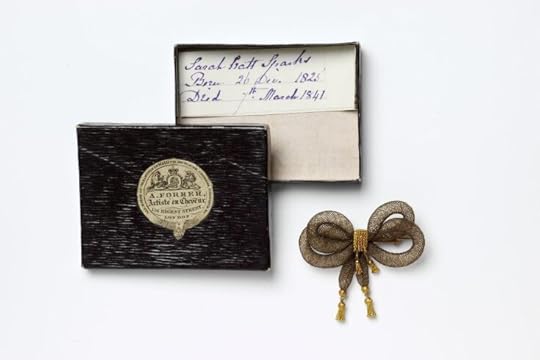 Sarah Pratt Sparks
Born 26 Dec. 1825
Died 7th March 1841
A. FORRER,
Artiste en Cheveux
REGENT STREET,
LONDON